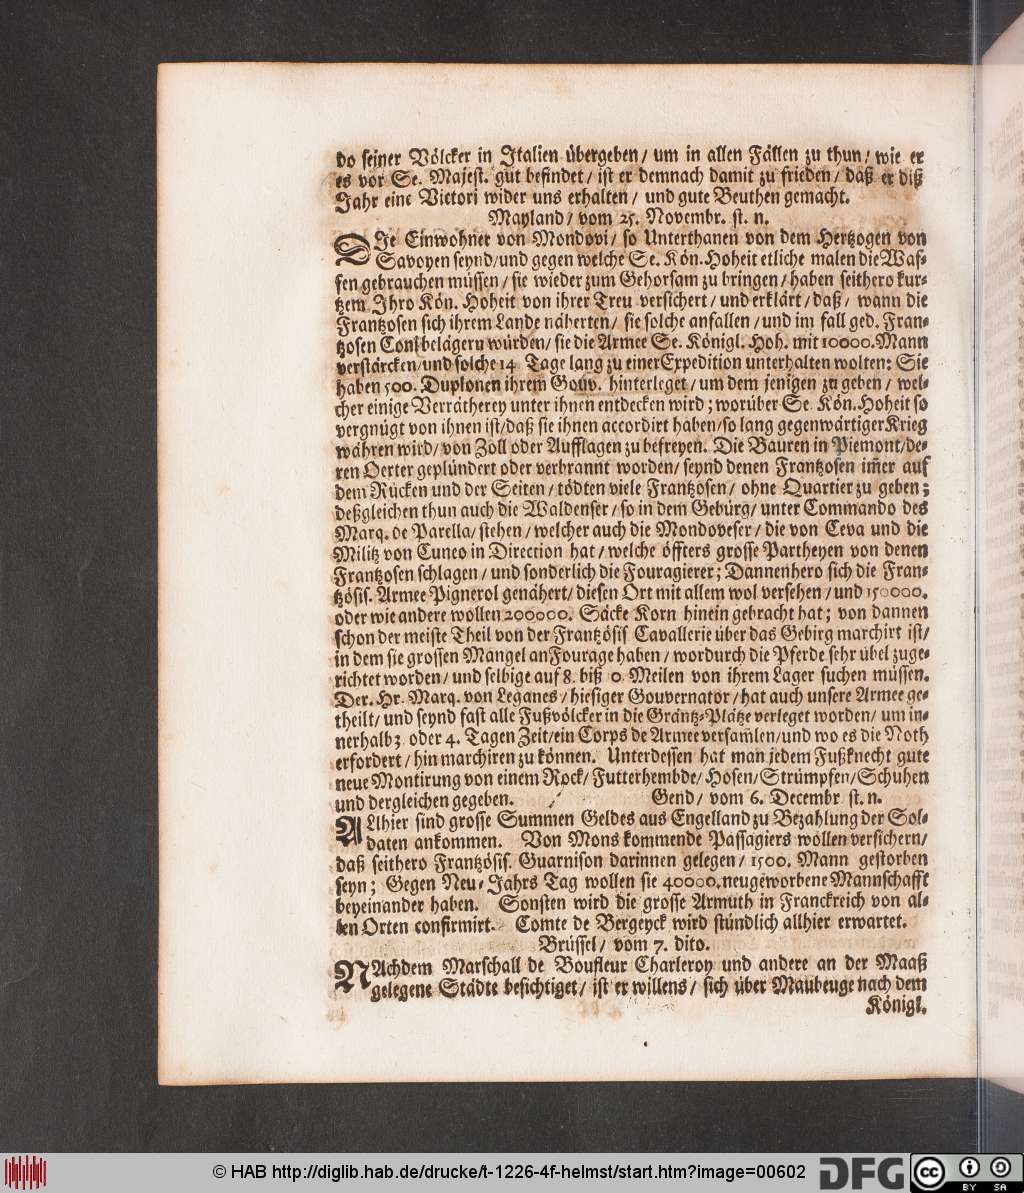 do seiner Völcker in Italien übergeben / um in allen Fällen zu thun / wie er
es vor Se. Majest. gut befindet / ist er demnach damit zu frieden / daß er diß
Jahr eine Victori wider uns erhalten / und gute Beuthen gemacht.
Mayland / vom 25. Novembr. st. n.
DIe Einwohner von Mondovi / so Unterthanen von dem Hertzogen von
Savoyen seynd / und gegen welche Se. Kön. Hoheit etliche malen die Waf-
fen gebrauchen müssen / sie wieder zum Gehorsam zu bringen / haben seithero kur-
tzem Ihro Kön. Hoheit von ihrer Treu versichert / und erklärt / daß / wann die
Frantzosen sich ihrem Lande näherten / sie solche anfallen / und im fall ged. Fran-
tzosen Coni belägern würden / sie die Armee Se. Königl. Hoh. mit 10000. Mann
verstärcken / und solche 14 Tage lang zu einer Expedition unterhalten wolten: Sie
haben 500. Duplonen ihrem Gouv. hinterleget / um dem jenigen zu geben / wel-
cher einige Verrätherey unter ihnen entdecken wird; worüber Se. Kön. Hoheit so
vergnügt von ihnen ist / daß sie ihnen accordirt haben / so lang gegenwärtiger Krieg
währen wird / von Zoll oder Aufflagen zu befreyen. Die Bauren in Piemont / de-
ren Oerter geplündert oder verbrannt worden / seynd denen Frantzosen im̃er auf
dem Rücken und der Seiten / tödten viele Frantzosen / ohne Quartier zu geben;
deßgleichen thun auch die Waldenser / so in dem Gebürg / unter Commando des
Marq. de Parella / stehen / welcher auch die Mondoveser / die von Ceva und die
Militz von Cuneo in Direction hat / welche öffters grosse Partheyen von denen
Frantzosen schlagen / und sonderlich die Fouragierer; Dannenhero sich die Fran-
tzösis. Armee Pignerol genähert / diesen Ort mit allem wol versehen / und 150000.
oder wie andere wollen 200000. Säcke Korn hinein gebracht hat; von dannen
schon der meiste Theil von der Frantzösis Cavallerie über das Gebirg marchirt ist /
in dem sie grossen Mangel an Fourage haben / wordurch die Pferde sehr übel zuge-
richtet worden / und selbige auf 8. biß 0. Meilen von ihrem Lager suchen müssen.
Der. Hr. Marq. von Leganes / hiesiger Gouvernator / hat auch unsere Armee ge-
theilt / und seynd fast alle Fußvölcker in die Gräntz-Plätze verleget worden / um in-
nerhalb 3 oder 4. Tagen Zeit / ein Corps de Armee versam̃len / und wo es die Noth
erfordert / hin marchiren zu können. Unterdessen hat man jedem Fußknecht gute
neue Montirung von einem Rock / Futterhembde / Hosen / Strümpfen / Schuhen
und dergleichen gegeben. Gend / vom 6. Decembr st. n.
ALlhier sind grosse Summen Geldes aus Engelland zu Bezahlung der Sol-
daten ankommen. Von Mons kommende Passagiers wollen versichern /
daß seithero Frantzösis. Guarnison darinnen gelegen / 1500. Mann gestorben
seyn; Gegen Neu-Jahrs Tag wollen sie 40000. neugeworbene Mannschafft
beyeinander haben. Sonsten wird die grosse Armuth in Franckreich von al-
len Orten confirmirt. Comte de Bergeyck wird stündlich allhier erwartet.
Brüssel / vom 7. dito.
NAchdem Marschall de Boufleur Charleroy und andere an der Maaß
gelegene Städte besichtiget / ist er willens / sich über Maubeuge nach dem
Königl.
© HAB http://diglib.hab.de/drucke/t-1226-4f-helmst/start.htm?image=00602
DFG
cc BY SA